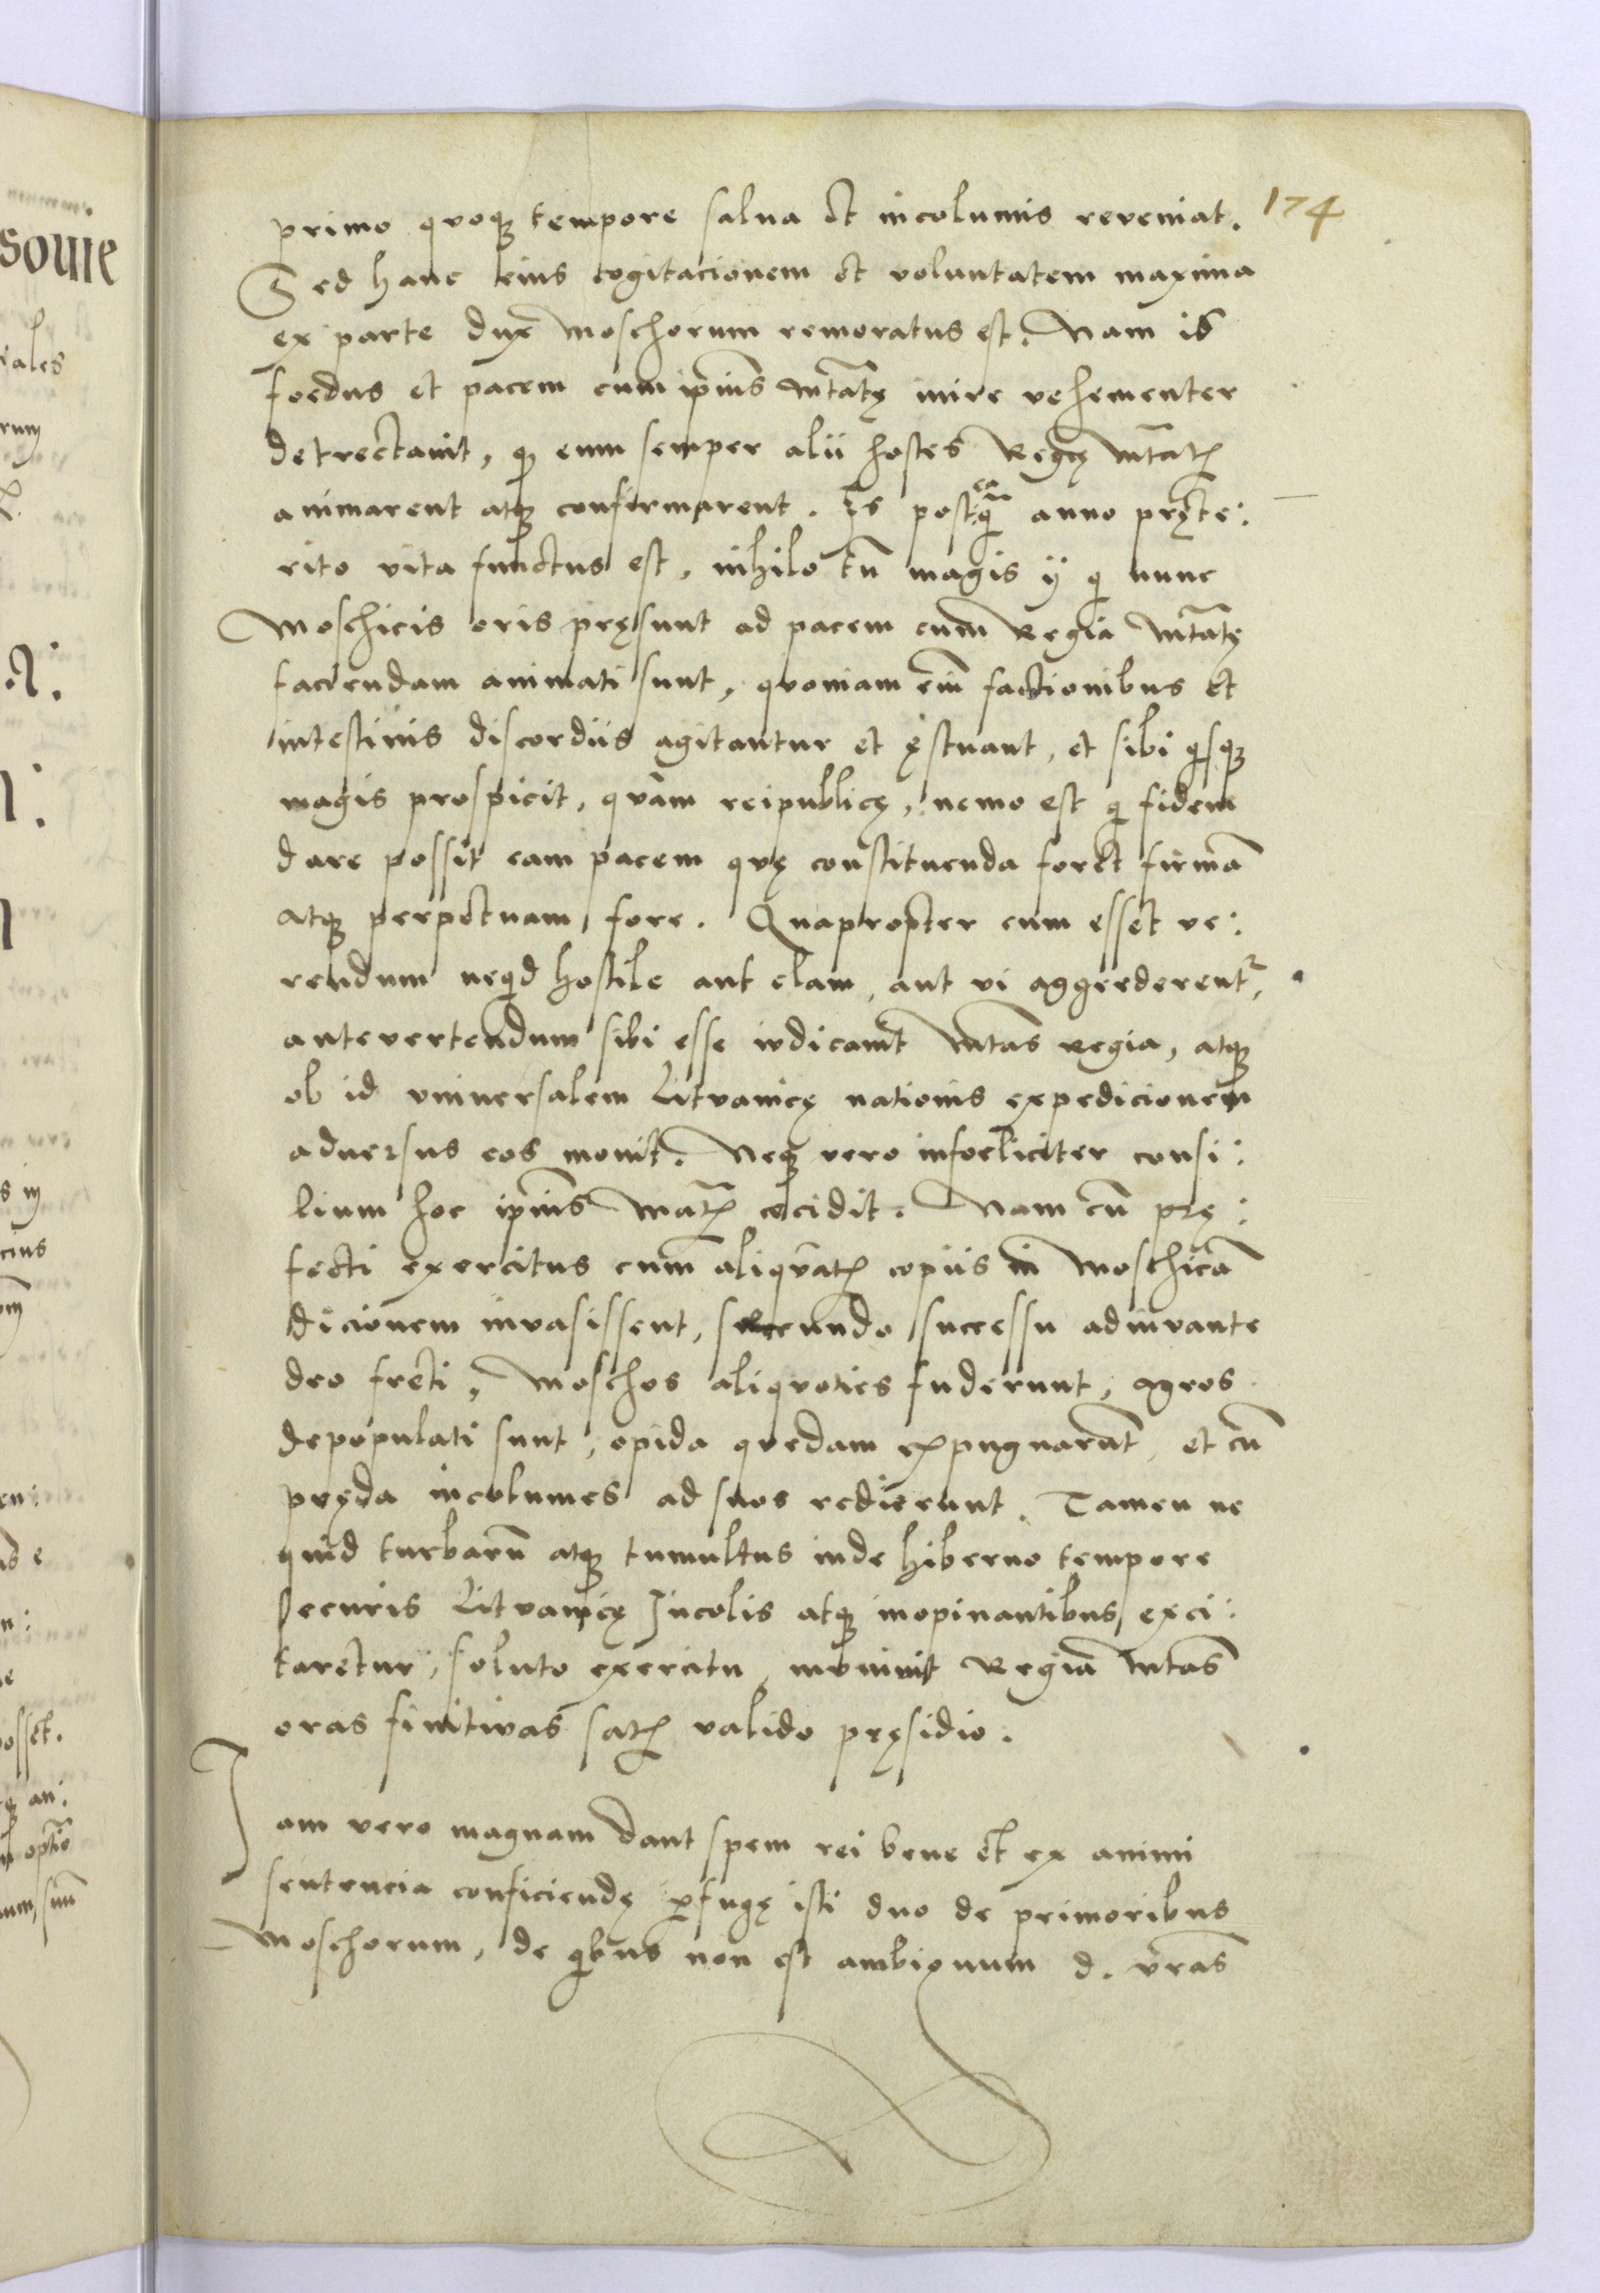 174
primo quoq tempore salua et incolumis reveniat.
Sed hanc eius cogitacionem et voluntatem maxima
ex parte dux Moschorum remoratus est. Nam is
foedus et pacem cum ipius Mtatę inire vehementer
detrectauit, q eum semper alii hostes Regię Mtatis
animarent atq confirmarent. Is postea q̃ anno pręte:
rito vita functus est, nihilo tn̄ magis ij q nunc
Moschicis oris pręsunt ad pacem cum Regia Mtatę
faciendam animati sunt, quoniam em̄ factionibus et
intestinis discordiis agitantur et ęstuant, et sibi qsq
magis prospicit, quàm reipublicę, nemo est q fidem
dare possit eam pacem quę constituenda foret firmā
atq perpetuam fore. Quapropter cum esset ve:
rendum neqd hostile aut clam, aut vi aggrederentr,
antevertendum sibi esse iudicauit Mtas regia, atq
ob id vniuersalem Lituanicę nationis expedicionem
aduersus eos mouit. Neq vero infoeliciter consi:
lium hoc ipius Matis cecidit. Nam cū prę:
fecti exercitus cum aliquātis copiis in Moschicā
dicionem invasissent, secundo successu adiuvante
deo freti, Moschos aliquoties fuderunt, agros
depopulati sunt, opida quedam expugnarūt, et cū
pręda incolumes ad suos redierunt. Tamen ne
quid turbarū atq tumultus inde hiberno tempore
securis Lituanicę Incolis atq inopinantibus exci:
taretur, soluto exercitu, munivit Regia Mtas
oras finitimas satis valido pręsidio.
Iam vero magnam dant spem rei bene et ex animi
sentencia conficiendę pfugę isti duo de primoribus
Moschorum, de qbus non est ambiguum d. vras